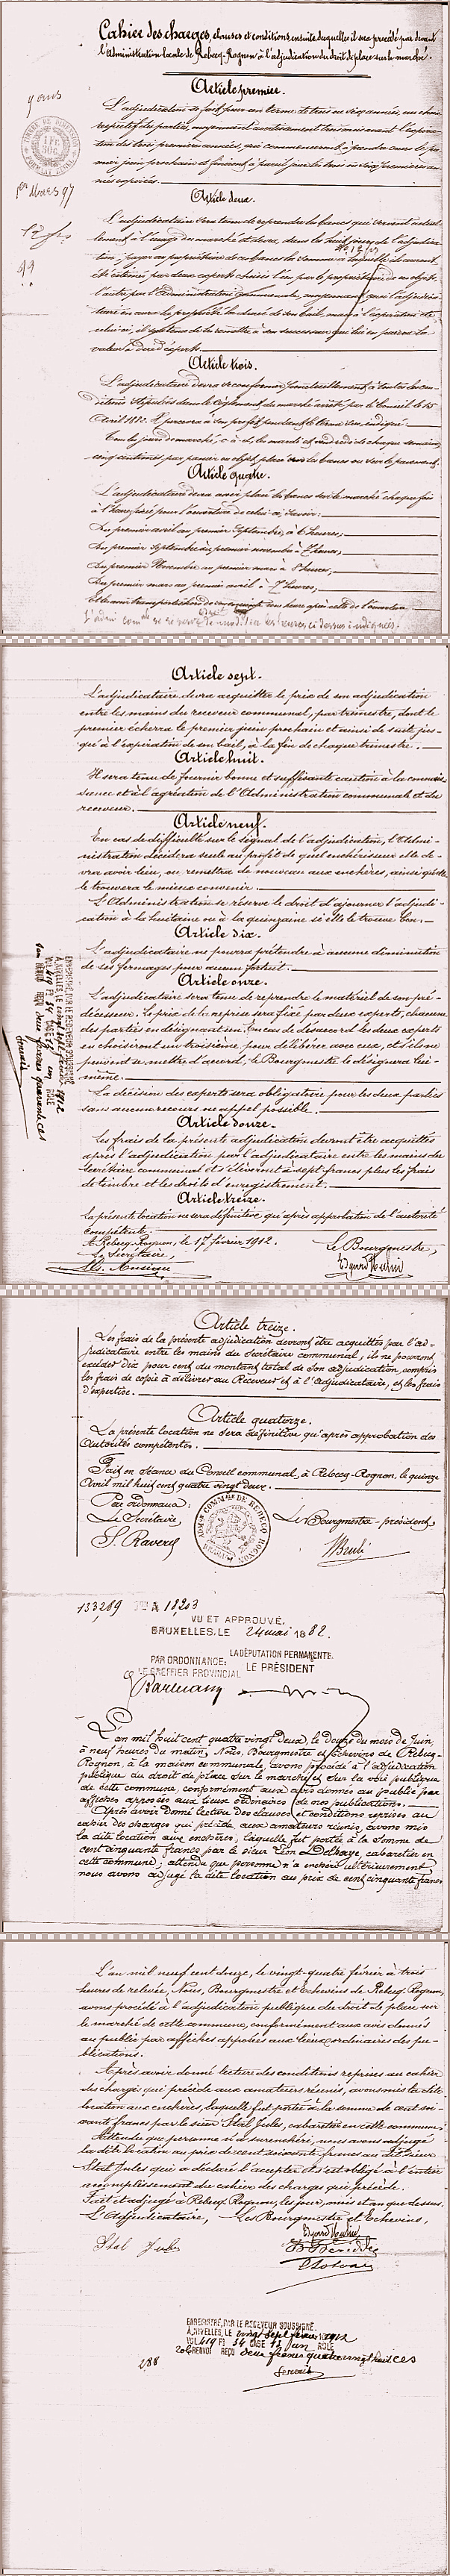 Cahier des charges, clauses et conditions ensuite duquelles il sera procédé par devant
l'administration locale de Rebecq-Rognon à l'adjudication du droit de place sur le marché.
Article premier.
L'adjudication se fait pour un terme de trois ou six années, au choix
respectif des parties, moyennant avertissement trois mois avant l'expira-
tion des trois premières années, qui commenceront à prendre cours le pre-
mier juin prochain et finiront à pareil jour les trois ou six premières an-
nées expirées.
Article deux.
L'adjudicataire sera tenu de reprendre les bancs qui servent actuel-
lement à l'usage du marché et devra, dans les huit jours de l'adjudica-
tion, payer au propriétaire de ces bancs la somme à laquelle ils auront
été estimés par deux experts choisis l'un par le propriétaire de ces objets,
l'autre par l'Administration communale, moyennant quoi l'adjudica-
taire en aura la propriété la durée de son bail, mais à l'expiration de
celui-ci, il sera tenu de les remettre à son successeur qui lui en paiera la
valeur à dire d'experts.
Article trois.
L'adjudicataire devra se conformer ponctuellement à toutes les con-
ditions stipulées dans le règlement du marché arrêté par le Conseil le 15
Avril 1882. Il percevra à son profit pendant le terme ci-dessus indiqué.
Tous les jours de marché, c. à. d. les mardi et vendredi de chaque semaine,
cinq centimes par panier ou objet placé sur les bancs ou sur le pavement.
Article quatre.
L'adjudicataire devra avoir placé les bancs sur le marché chaque fois
à l'heure fixée pour l'ouverture de celui-ci, savoir:
Du premier avril au premier Septembre, à 6 heures,
Du premier septembre au premier novembre à 7 heures,
Du premier Novembre au premier mars à 8 heures,
Du premier mars au premier avril à 7 heures,
L'adm. comle se réserve de modifier les heures ci-dessus indiquées.
Article sept.
L'adjudicataire devra acquitter le prix de son adjudication
entre les mains du receveur communal, par trimestre, dont le
premier écherra le premier juin prochain et ainsi de suite jus-
qu'à l'expiration de son bail, à la fin de chaque trimestre.
Article huit.
Il sera tenu de fournir bonne et suffisante caution à la connais-
sance et à l'agréation de l'Administration communale et du
receveur.
Article neuf.
En cas de difficulté sur le signal de l'adjudication, l'Admi-
nistration décidera seule au profit de quel enchérisseur elle de-
vra avoir lieu, ou remettra de nouveau aux enchères, ainsi qu'elle
le trouvera le mieux convenir.
L'Administration se réserve le droit d'ajourner l'adjudi-
cation à la huitaine ou à la quinzaine si elle le trouve bon.
Article dix.
L'adjudicataire ne pourra prétendre à aucune diminution
de ses fermages pour aucun fortuit.
Article onze.
L'adjudicataire sera tenu de reprendre le matériel de son pré-
décesseur. Le prix de la reprise sera fixé par deux experts, chacune
des parties en désignant un. En cas de désaccord les deux experts
en choisiront un troisième pour délibérer avec eux, et s'ils ne
peuvent se mettre d'accord, le Bourgmestre le désignera lui-
même.
La décision des experts sera obligatoire pour les deux parties
sans aucun recours ne appel possible.
Article douze.
Les frais de la présente adjudication devront être acquittés
après l'adjudication par l'adjudicataire entre les mains du
Secrétaire communal et s'élèveront à sept francs plus les frais
de timbre et les droits d'enregistrement.
Article treize.
La présente location ne sera définitive qu'après approbation de l'autorité
compétente.
A Rebecq-Rognon, le 17 février 1912.
Le Secrétaire,
Le Bourgmestre,
ENREGISTRÉ, PAR LE RECEVEUR SOUSSIGNÉ
A NIVELLES, LE vingt sept février 1912
VOL 419 F° 34 CASE 13 un ROLE
san RENVOI REÇU deux francs quarante ces
Servais
Article treize.
Les frais de la présente adjudication devront être acquittés par l'ad-
judicataire entre les mains du Secrétaire communal, ils ne pourront
excéder dix pour cent du montant total de son adjudication, compris
les frais de copie à délivrer au Receveur et à l'Adjudicataire, et les frais
d'expertise.
Article quatorze.
La présente location ne sera définitive qu'après approbation des
Autorités compétentes.
Fait en séance du Conseil communal, à Rebecq-Rognon, le quinze
Avril mil huit cent quatre vingt deux.
Par ordonnance:
Le Secrétaire,
Le Bourgmestre-président,
S. Raverd
133,289
18,203
VU ET APPROUVÉ.
BRUXELLES, LE 24 mai 1882.
LA DÉPUTATION PERMANENTE.
PAR ORDONNANCE:
LE GREFFIER PROVINCIAL
LE PRÉSIDENT
L'an mil huit cent quatre vingt deux, le douze du mois de Juin,
à neuf heures du matin, Nous, Bourgmestre et Echevins de Rebecq-
Rognon, à la maison communale, avons procédé à l'adjudication
publique du droit de place sur le marché et sur la voie publique
de cette commune, conformément aux avis donnés au public par
affiches apposées aux lieux ordinaires de nos publications.
Après avoir donné lecture des clauses et conditions reprises au
cahier des charges qui précède aux amateurs réunis, avons mis
la dite location aux enchères, laquelle fut portée à la somme de
cent cinquante francs par le sieur Léon Delhaye, cabaretier en
cette commune; attendu que personne n'a enchéri ultérieurement
nous avons adjugé la dite location au prix de cent cinquante francs
L'an mil neuf cent douze, le vingt-quatre février à trois
heures de relevée, Nous, Bourgmestre et Echevins de Rebecq-Rognon,
avons procédé à l'adjudication publique du droit de place sur
le marché de cette commune, conformément aux avis donnés
au public par affiches apposées aux lieux ordinaires des pu-
blications.
Après avoir donné lecture des conditions reprises au cahier
des charges qui précède aux amateurs réunis, avons mis la dite
location aux enchères, laquelle fut portée à la somme de cent soi-
xante francs par le sieur Stal Jules, cabaretier en cette commune.
Attendu que personne n'a surenchéri, nous avons adjugé
la dite location au prix de cent soixante francs au dit sieur
Stal Jules qui a déclaré l'accepter et s'est obligé à l'entier
accomplissement du cahier des charges qui précède.
Fait et adjugé à Rebecq-Rognon, les jour, mois et an que dessus.
L'Adjudicataire,
Les Bourgmestre et Echevins,
Stal Jules
ENREGISTRÉ, PAR LE RECEVEUR SOUSSIGNÉ
A NIVELLES, LE vingt sept février 1912
VOL 419 F° 34 CASE 13 un ROLE
san RENVOI REÇU deux francs quatre vingt huit ces
Servais
2,88